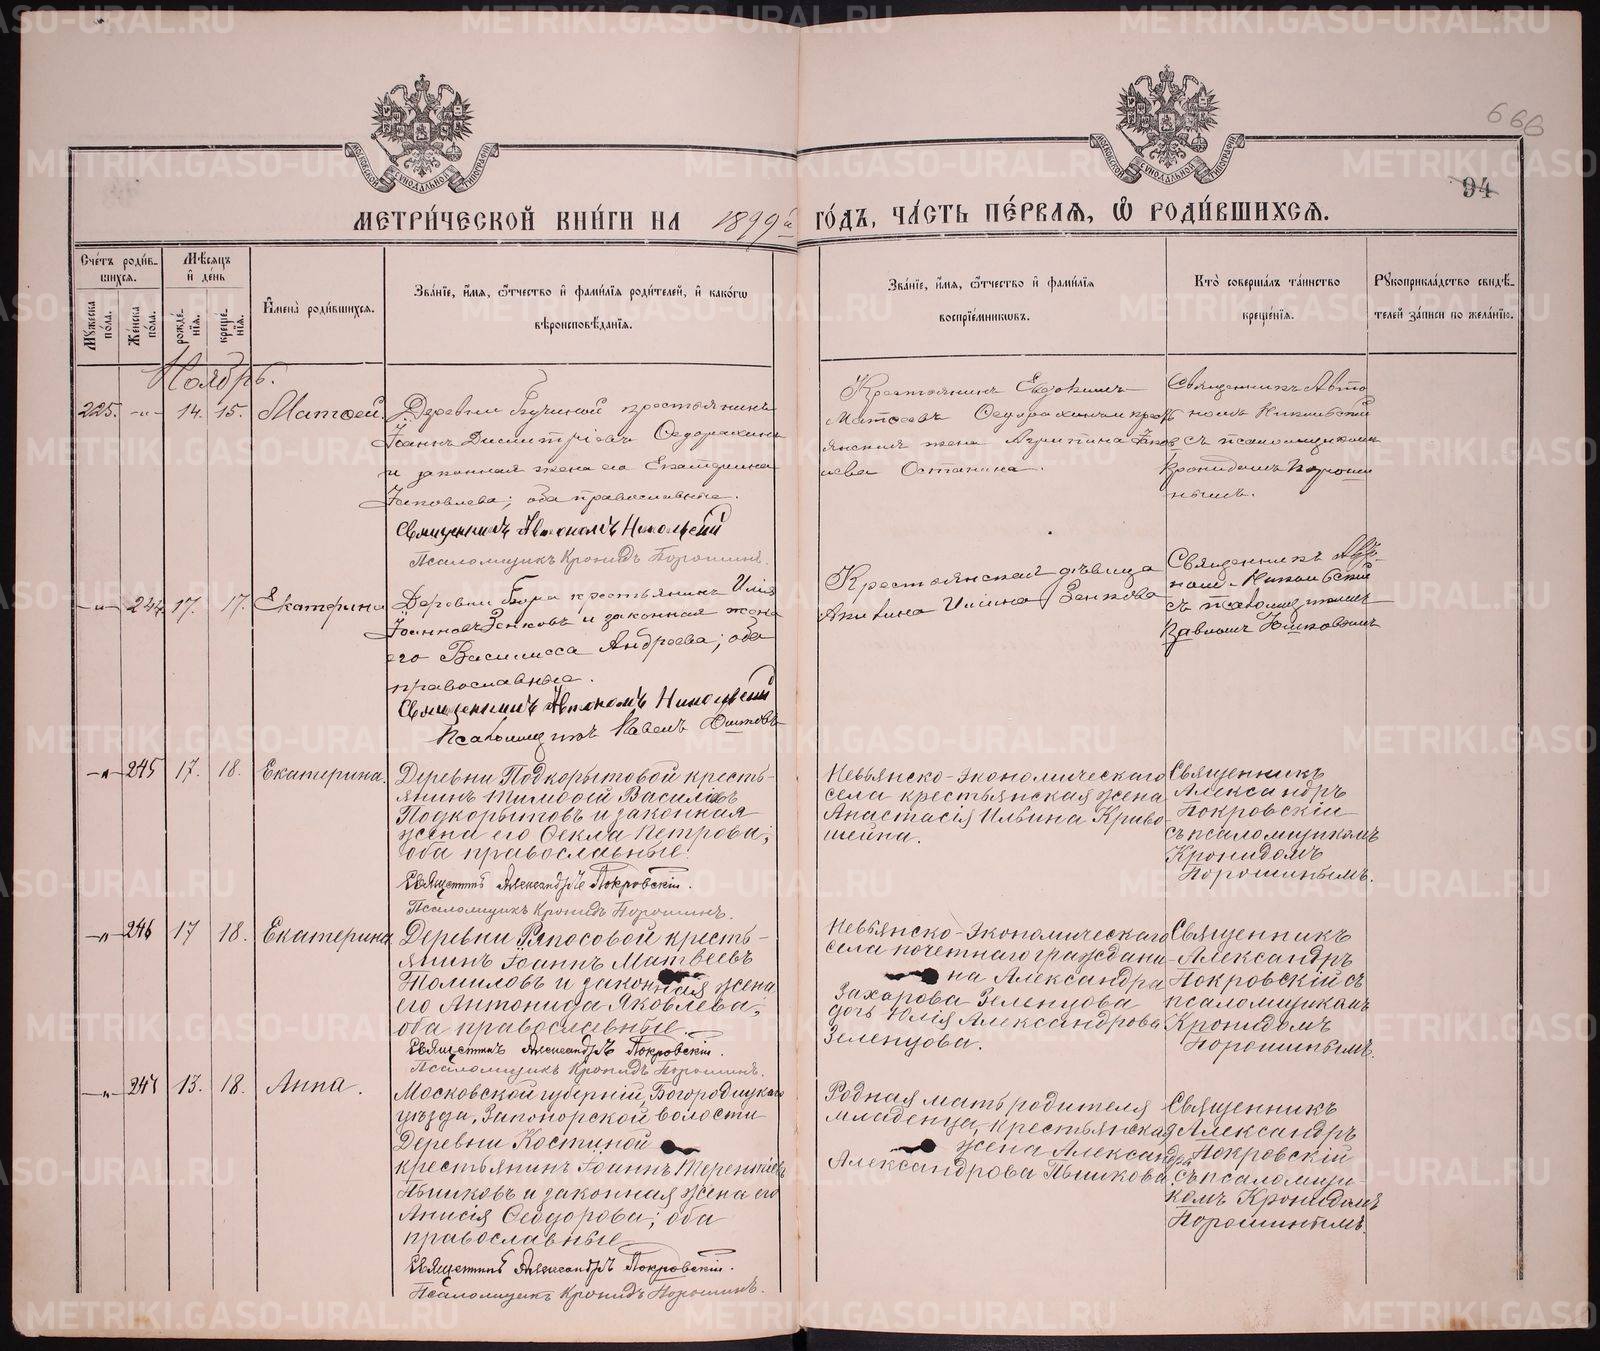 666
94
МОСКОВСКОЙ СѴНОДАЛЬНОЙ ТИПОГРАФІИ
МОСКОВСКОЙ СѴНОДАЛЬНОЙ ТИПОГРАФІИ
МЕТРИ́ЧЕСКОЙ КНИ́ГИ НА 1899й ГО́ДЪ, ЧА́СТЬ ПЕ́РВАЯ, Ѽ РОДИ́ВШИХСЯ.
Сче́тъ роди́в-
шихся.
Мѣсяцъ
и де́нь
Му́жеска
по́ла.
Же́нска
по́ла.
рожде́-
нїя.
креще́-
нїя.
Имена̀ роди́вшихся.
Зва́нїе, и́мя, ѻ҆́тчество и фами́лїя роди́телей, и како́гѡ
вѣроисповѣ́данїя.
Зва́нїе, и́мя, ѻ҆́тчество и фами́лїя
воспрїе́мниковъ.
Кто̀ соверша́лъ та́инство
креще́нїя.
Рукоприкла́дство свидѣ́-
телей за́писи по жела́нїю.
Ноябрь.
225. -"- 14. 15. Матѳей.
Деревни Бучиной крестьянинъ
Іоаннъ Димитріевъ Ѳедорахинъ
и законная жена его Екатерина
Іаковлева; оба православные.
Священникъ Автономъ Никольскій
Псаломщикъ Кронидъ Порошинъ.
Крестьянинъ Евдокимъ
Матѳеевъ Ѳедорахинъ и крест
янская жена Агрипина Іаков
лева Останина.
Священникъ Авто
номъ Никольскій
съ псаломщикомъ
Кронидомъ Пороши
нымъ.
-"- 244 17. 17. Екатерина
Деревни Бора крестьянинъ Илія
Іоанновъ Зенковъ и законная жена
его Василисса Андреева; оба
православные.
Священникъ Автономъ Никольскій
Псаломщикъ Павелъ
Крестьянская дѣвица
Акилина Иліина Зенкова
Священникъ Авто-
номъ Никольскій
съ псаломщикомъ
Павломъ
-"- 245 17. 18. Екатерина.
Деревни Подкорытовой кресть-
янинъ Тимоѳей Василіевъ
Подкорытовъ и законная
жена его Ѳекла Петрова;
оба православные.
Священникъ Александръ Покровскій.
Псаломщикъ Кронидъ Порошинъ.
Невьянско-Экономическаго
села крестьянская жена
Анастасія Ильина Криво-
шеина.
Священникъ
Александръ
Покровскій
съ псаломщикомъ
Кронидомъ
Порошинымъ.
-"- 246 17 18. Екатерина
Деревни Ряпосовой кресть-
янинъ Іоаннъ Матвеевъ
Томиловъ и законная жена
его Антонида Яковлева;
оба православные.
Священникъ Александръ Покровскій.
Псаломщикъ Кронидъ Порошинъ.
Невьянско-Экономическаго
села почетнаго граждани-
на Александра
Захарова Зеленцова
дочь Юлія Александрова
Зеленцова.
Священникъ
Александръ
Покровскій съ
псаломщикомъ
Кронидомъ
Порошинымъ.
-"- 247 13. 18. Анна.
Московской губерніи, Богородицкаго
уѣзда, Запонорской волости
Деревни Костиной
крестьянинъ Іоаннъ Терентіевъ
Пышковъ и законная жена его
Анисія Ѳеодорова; оба
православные
Священникъ Александръ Покровскій.
Псаломщикъ Кронидъ Порошинъ.
Родная мать родителя
младенца, крестьянская
жена Александра
Александрова Пышкова.
Священникъ
Александръ
Покровскій
съ псаломщи-
комъ Кронидомъ
Порошинымъ.